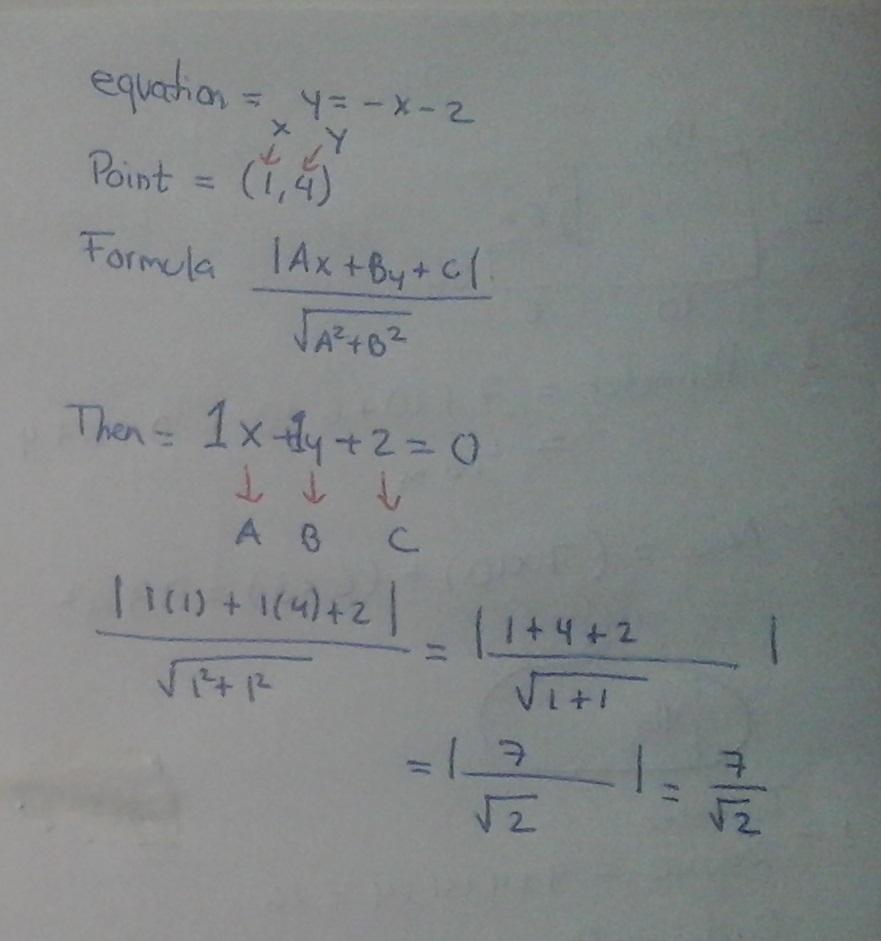 equation = y = -x - 2
x y
Point = (1, 4)
Formula |Ax + By + C|
√A²+B²
Then = 1x + 1y + 2 = 0
A B C
|1(1) + 1(4) + 2| = |1 + 4 + 2|
√1² + 1² √1 + 1
= |7| = 7
√2 √2